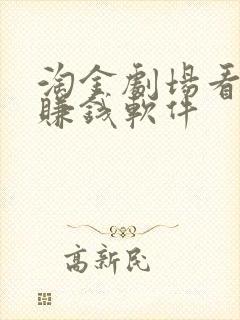 淘金劇場看
賺錢軟件
高新民